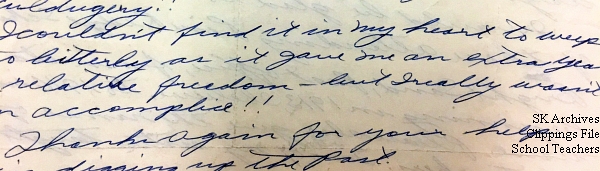 I couldn't find it in my heart to weep
bitterly as it gave me an extra year
relative freedom - but I really wasn't
accomplice!!
Thanks again for your help
digging up the past.
SK Archives
Clippings File
School Teachers